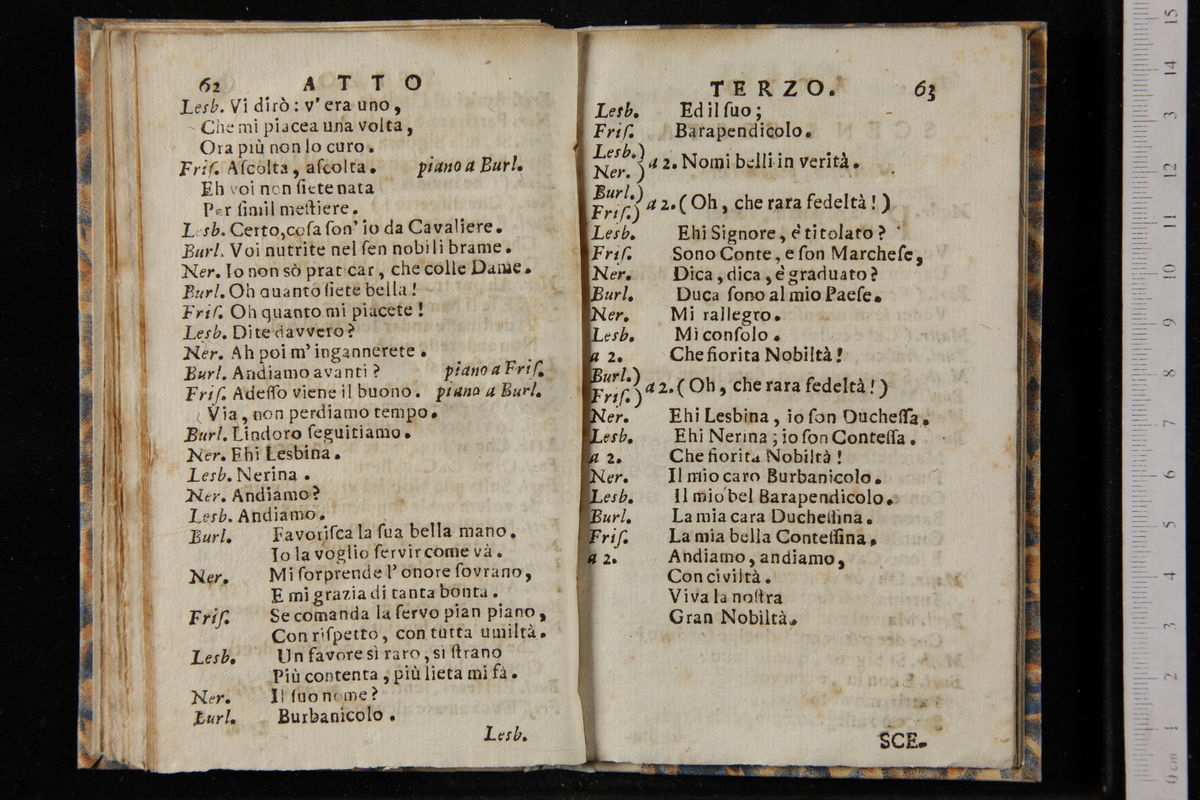 62 ATTO
Lesb. Vi dirò: v'era uno,
Che mi piacea una volta,
Ora più non lo curo.
Friſ. Aſcolta, aſcolta. piano a Burl.
Eh voi non ſiete nata
Per ſimil meſtiere.
Lesb. Certo, coſa ſon' io da Cavaliere.
Burl. Voi nutrite nel ſen nobili brame.
Ner. Io non sò prat car, che colle Dame.
Burl. Oh quanto ſiete bella!
Friſ. Oh quanto mi piacete!
Lesb. Dite davvero?
Ner. Ah poi m'ingannerete.
Burl. Andiamo avanti? piano a Friſ.
Friſ. Adeſſo viene il buono. piano a Burl.
Via, non perdiamo tempo.
Burl. Lindoro ſeguitiamo.
Ner. Ehi Lesbina.
Lesb. Nerina.
Ner. Andiamo?
Lesb. Andiamo.
Burl. Favoriſca la ſua bella mano.
Io la voglio ſervir come và.
Ner. Mi ſorprende l'onore ſovrano,
E mi grazia di tanta bontà.
Friſ. Se comanda la ſervo pian piano,
Con riſpetto, con tutta umiltà.
Lesb. Un favore sì raro, sì ſtrano
Più contenta, più lieta mi fà.
Ner. Il ſuo nome?
Burl. Burbanicolo.
Lesb.
TERZO. 63
Lesb. Ed il ſuo;
Friſ. Barapendicolo.
Lesb.)
Ner. ) a 2. Nomi belli in verità.
Burl.)
Friſ.) a 2. (Oh, che rara fedeltà!)
Lesb. Ehi Signore, è titolato?
Friſ. Sono Conte, e ſon Marcheſe,
Ner. Dica, dica, è graduato?
Burl. Duca ſono al mio Paeſe.
Ner. Mi rallegro.
Lesb. Mi conſolo.
a 2. Che fiorita Nobiltà!
Burl.)
Friſ.) a 2. (Oh, che rara fedeltà!)
Ner. Ehi Lesbina, io ſon Ducheſſa.
Lesb. Ehi Nerina; io ſon Conteſſa.
a 2. Che fiorita Nobiltà!
Ner. Il mio caro Burbanicolo.
Lesb. Il mio bel Barapendicolo.
Burl. La mia cara Ducheſſina.
Friſ. La mia bella Conteſſina.
a 2. Andiamo, andiamo,
Con civiltà.
Viva la noſtra
Gran Nobiltà.
SCE-
0 cm 1 2 3 4 5 6 7 8 9 10 11 12 3 14 15